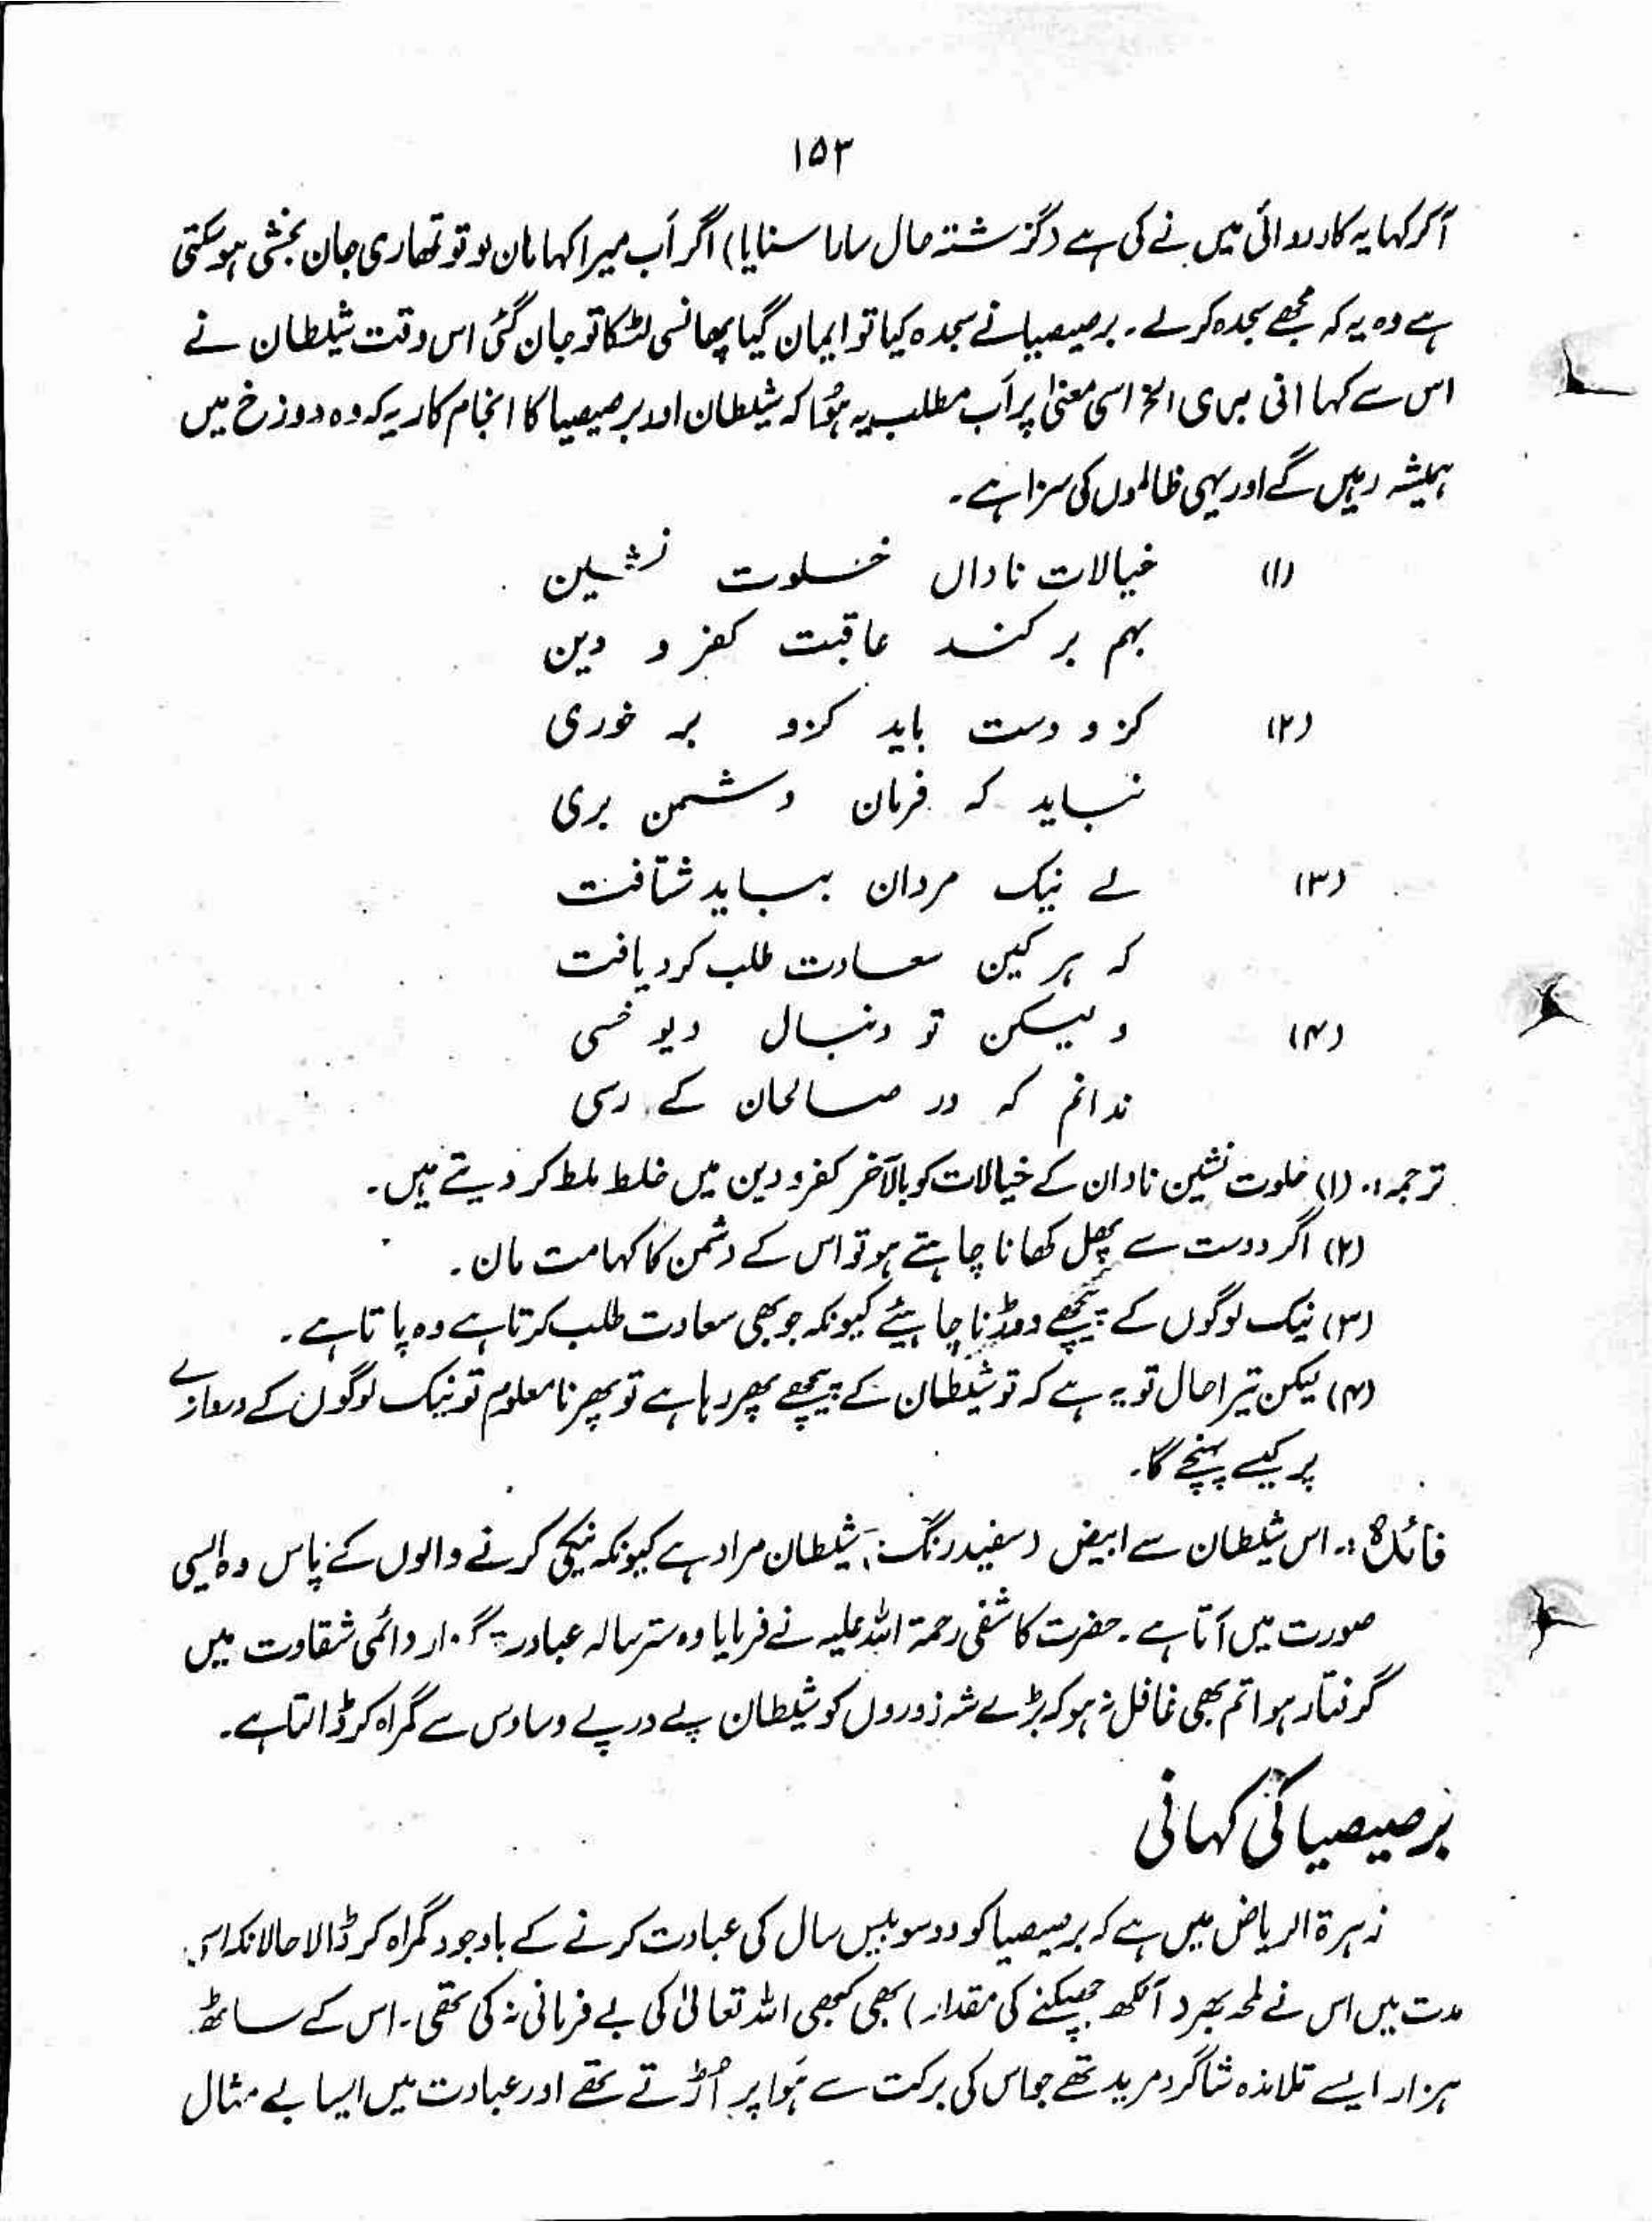 ۱۵۳
آکر کہا یہ کارروائی میں نے کی ہے (گزشتہ حال سارا سنایا) اگر اَب میرا کہا مان لو تو تمھاری جان بخشی ہو سکتی
ہے وہ یہ کہ مجھے سجدہ کرلے۔ برصیصیا نے سجدہ کیا تو ایمان گیا پھانسی لٹکا تو جان گئی اس وقت شیطان نے
اس سے کہا انی بری الخ اسی معنیٰ پر اَب مطلب یہ ہُوا کہ شیطان اور برصیصیا کا انجام کار یہ کہ وہ دوزخ میں
ہمیشہ رہیں گے اور یہی ظالموں کی سزا ہے۔
(۱) خیالات ناداں خلوت نشین
بہم بر کند عاقبت کفر و دین
(۲) کز و دست باید کزو بر خوری
نباید کہ فرمان دشمن بری
(۳) لے نیک مردان بباید شتافت
کہ ہر کین سعادت طلب کرد یافت
(۴) ولیکن تو دنبال دیو خسی
ندانم کہ در صالحان کے رسی
ترجمہ:۔ (۱) خلوت نشین نادان کے خیالات کو بالآخر کفر و دین میں خلط ملط کر دیتے ہیں۔
(۲) اگر دوست سے پھل کھانا چاہتے ہو تو اس کے دشمن کا کہا مت مان۔
(۳) نیک لوگوں کے پیچھے دوڑنا چاہیئے کیونکہ جو بھی سعادت طلب کرتا ہے وہ پاتا ہے۔
(۴) لیکن تیرا حال تو یہ ہے کہ تو شیطان کے پیچھے پھر رہا ہے تو پھر نامعلوم تو نیک لوگوں کے دروازے
پر کیسے پہنچے گا۔
فائدہ:۔ اس شیطان سے ابیض (سفید رنگ) شیطان مراد ہے کیونکہ نیکی کرنے والوں کے پاس وہ ایسی
صورت میں آتا ہے۔ حضرت کاشفی رحمۃ اللہ علیہ نے فرمایا وہ ستر سالہ عبادت گزار دائمی شقاوت میں
گرفتار ہوا تم بھی غافل نہ ہو کہ بڑے شہ زوروں کو شیطان پے در پے وساوس سے گمراہ کر ڈالتا ہے۔
برصیصیا کی کہانی
زہرۃ الریاض میں ہے کہ برصیصیا کو دو سو بیس سال کی عبادت کرنے کے باوجود گمراہ کر ڈالا حالانکہ اس
مدت میں اس نے لمحہ بھر (آنکھ جھپکنے کی مقدار) بھی کبھی اللہ تعالیٰ کی بے فرمانی نہ کی تھی۔ اس کے ساٹھ
ہزار ایسے تلامذہ شاگرد مرید تھے جو اس کی برکت سے ہَوا پر اُڑتے تھے اور عبادت میں ایسا بے مثال